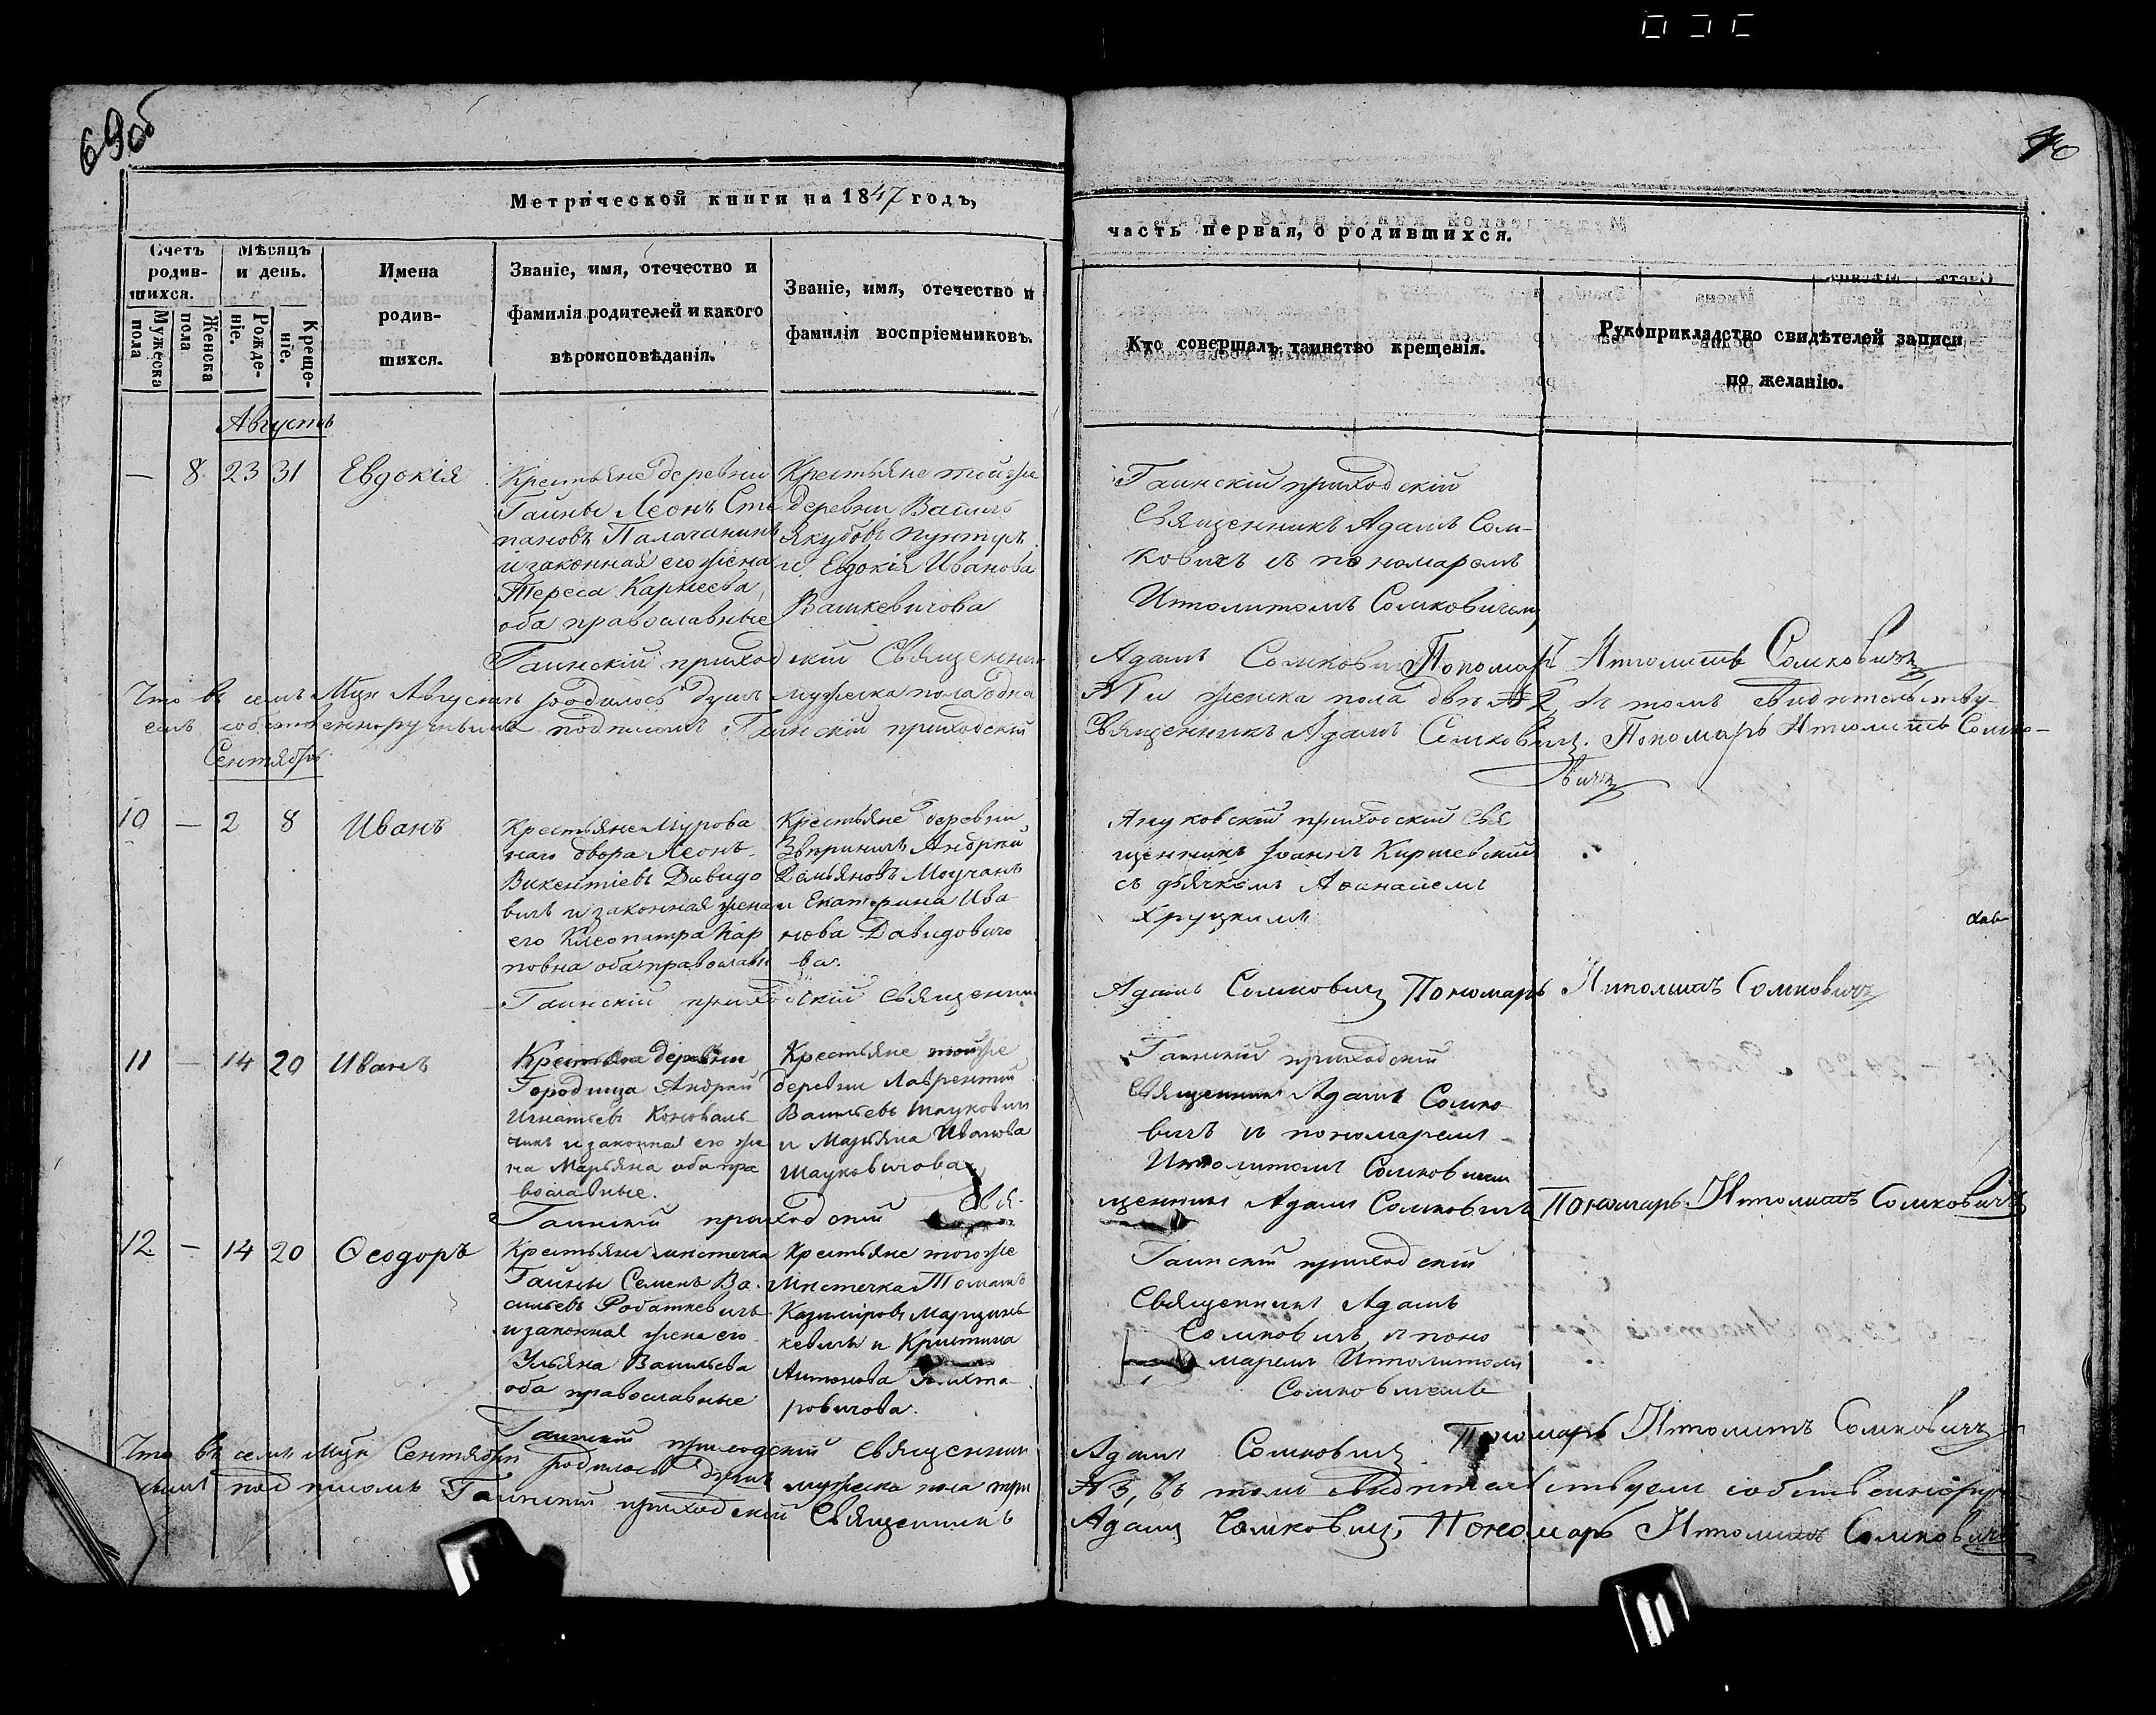 69об
Метрической книги на 1847 годъ,
Счетъ родив-шихся.
Мужеска пола
Женска пола
Мѣсяцъ и день.
Рожде-ніе.
Креще-ніе.
Имена родив-шихся.
Званіе, имя, отечество и
фамилія родителей и какого
вѣроисповѣданія.
Званіе, имя, отечество и
фамилія воспріемниковъ.
часть первая, о родившихся.
Кто совершалъ таинство крещенія.
Рукоприкладство свидѣтелей записи
по желанію.
Августъ
— 8 23 31 Евдокія
Крестьяне деревни
Гаины Леонъ Сте
пановъ Палачанинъ
и законная его жена
Тереса Карнеева
оба православные
Крестьяне тойже
деревни
Якубовъ
и Евдокія Иванова
Вашкевичова
Гаинскій приходскій
Священникъ Адамъ Сом-
ковичъ съ пономаремъ
Ипполитомъ Сомковичемъ
Гаинскій приходскій Священникъ Адамъ Сомковичъ Пономарь Ипполитъ Сомковичъ
Что въ семъ Мцѣ Августѣ родилось душъ мужеска пола одна № 1 и женска пола двѣ № 2, въ томъ свидѣтельству-
емъ собственноручнымъ подписомъ Гаинскій приходскій Священникъ Адамъ Сомковичъ. Пономарь Ипполитъ Сомко-
вичъ
Сентябрь
10 — 2 8 Иванъ
Крестьяне Мурова
наго двора Леонъ
Викентіевъ Давидо
вичъ и законная жена
его Клеопатра Кар
повна оба православн
Крестьяне деревни
Андрей
Демьяновъ Моучанъ
и Екатерина Ива
нова Давидовичо
ва.
приходскій Свя
щенникъ Іоаннъ
съ дьячкомъ Афанасіемъ
Хруцкимъ
Гаинскій приходскій Священникъ Адамъ Сомковичъ Пономарь Ипполитъ Сомковичъ
11 — 14 20 Иванъ
Крестьяне деревни
Городища Андрей
Игнатьевъ Коноваль-
чикъ и законная его же
на Марьяна оба пра
вославные.
Крестьяне тойже
деревни Лаврентій
Васильевъ Шаукович
и Марьяна Иванова
Шауковичова
Гаинскій приходскій
Священникъ Адамъ Сомко
вичъ съ пономаремъ
Ипполитомъ Сомковичем
Гаинскій приходскій Свя-
щенникъ Адамъ Сомковичъ Пономарь Ипполитъ Сомковичъ
12. — 14 20 Ѳеодоръ
Крестьяне мѣстечка
Гаины Семенъ Ва-
сильевъ Робаткевичъ
и законная жена его
Ульяна Васильева
оба православные
Крестьяне тогоже
мѣстечка Томашъ
Казиміровъ Марцин
кевичъ и Кристина
Антонова
ровичова.
Гаинскій приходскій
Священникъ Адамъ
Сомковичъ съ поно
маремъ Ипполитомъ
Сомковичемъ
Гаинскій приходскій Священникъ Адамъ Сомковичъ Пономарь Ипполитъ Сомковичъ
Что въ семъ Мцѣ Сентябрѣ родилось душъ мужеска пола три № 3, въ томъ свидѣтельствуемъ собственноруч-
нымъ подписомъ Гаинскій приходскій Священникъ Адамъ Сомковичъ, Пономарь Ипполитъ Сомковичъ